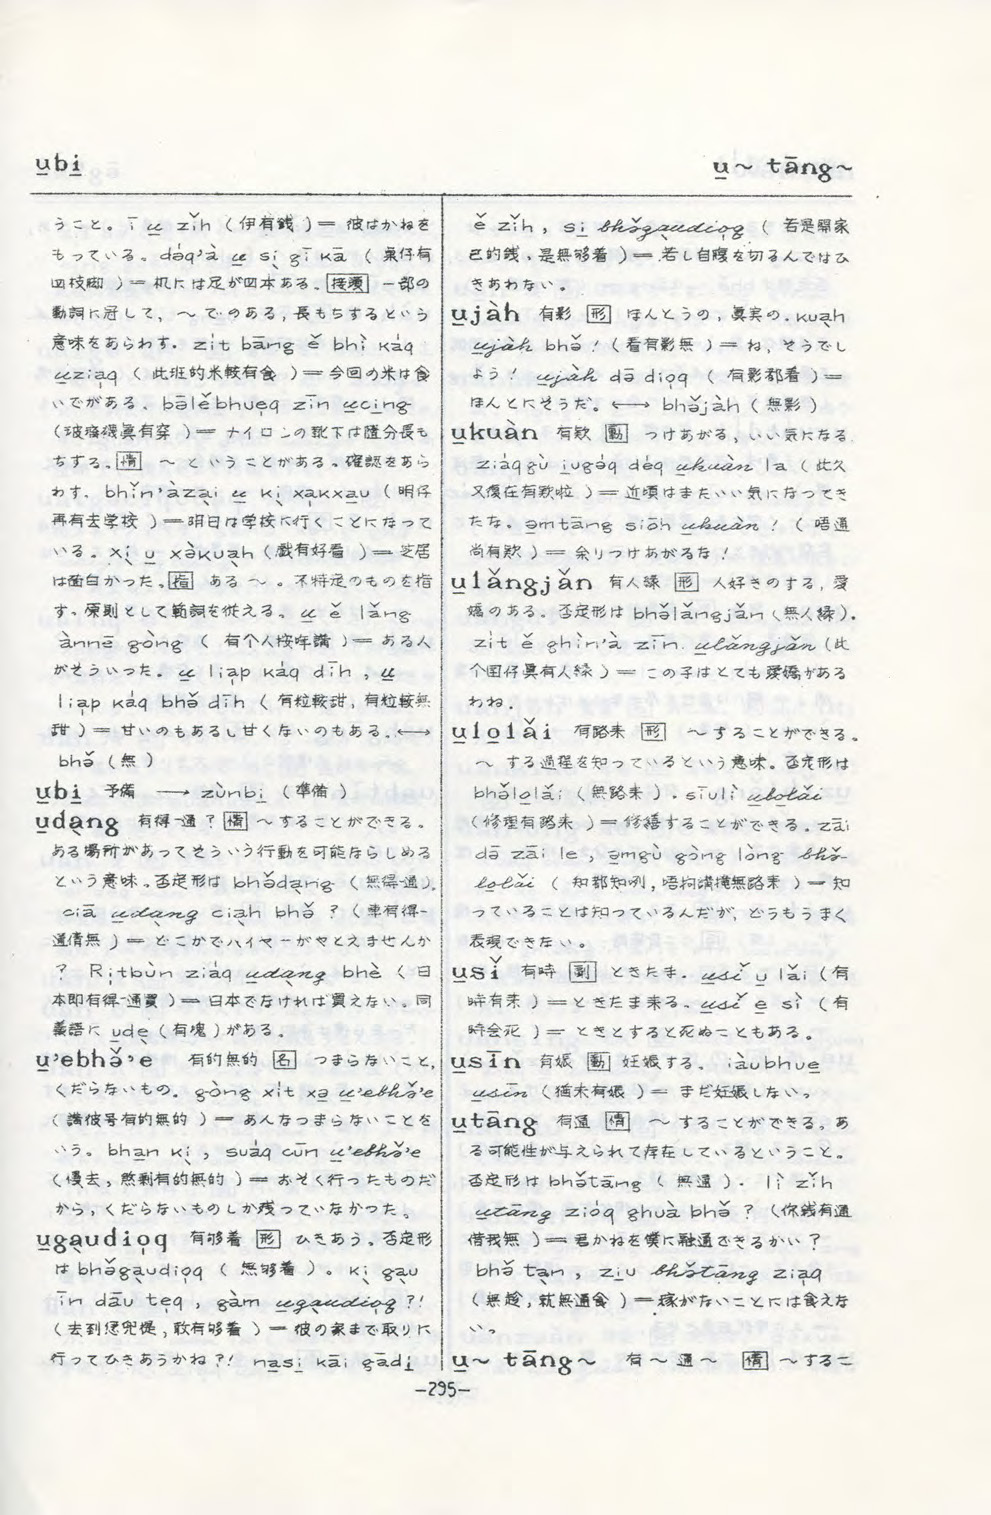 u̲bi̲
u̲～ tāng～
うこと。ī u̲ zǐh (伊有銭) ＝ 彼はかねを
もっている。dəq'à u̲ si̲ gī kā (桌仔有
四枝脚) ＝ 机には足が四本ある。[接頭] 一部の
動詞に冠して，～で のある，長もちするという
意味をあらわす。zit bāng ě bhì káq
u̲ziaq (此班的米較有食) ＝ 今回の米は食
いでがある。bəlēbhueq zīn u̲cing
(玻璃襪真有穿) ＝ ナイロンの靴下は随分長も
ちする。[情] ～ということがある。確認をあら
わす。bhin'àzai u̲ ki xakxau (明仔
再有去学校) ＝ 明日は学校に行くことになって
いる。xi u̲ xə̀kuah (戯有好看) ＝ 芝居
は面白かった。[指] ある～。不特定のものを指
す。原則として範詞を従える。u̲ ě lǎng
ànnē gòng (有个人按年講) ＝ ある人
がそういった。u̲ liap káq dīh , u̲
liap káq bhə̌ dīh (有粒較甜，有粒較無
甜) ＝ 甘いのもあるし甘くないのもある。←→
bhə̌ (無)
u̲bi̲ 予備 → zùnbi̲ (準備)
u̲dang 有得-通？[情] ～することができる。
ある場所があってそういう行動を可能ならしめる
という意味。否定形は bhə̌dang (無得-通)。
ciā u̲dang ciah bhə̌ ? (車有得-
通倩無) ＝ どこかでハイヤーがやとえませんか
? Ritbùn ziáq u̲dang bhè (日
本即有得-通買) ＝ 日本でなければ買えない。同
義語に u̲de (有塊) がある。
u̲'ebhə̌'e 有的無的 [名] つまらないこと，
くだらないもの。gòng xit xə u̲'ebhə̌'e
(講彼号有的無的) ＝ あんなつまらないことを
いう。bhan ki , suáq cūn u̲'ebhə̌'e
(慢去，煞剰有的無的) ＝ おそく行ったものだ
から，くだらないものしか残っていなかった。
u̲gaudioq 有够着 [形] ひきあう。否定形
は bhə̌gaudioq (無够着)。ki gau
īn dāu teq , gàm u̲gaudioq ?!
＝ 彼の家まで取りに
行ってひきあうかね?! na̲si̲ kāi gādi̲
ě zǐh , si̲ bhə̌gaudioq (若是開家
己的銭，是無够着) ＝ 若し自腹を切るんではひ
きあわない。
u̲jàh 有影 [形] ほんとうの，真実の。kuah
u̲jàh bhə̌ ! (看有影無) ＝ ね，そうでし
よう! u̲jàh dā dioq (有影都着) ＝
ほんとにそうだ。←→ bhə̌jàh (無影)
u̲kuàn 有款 [動] つけあがる，いい気になる。
ziáqgù iugəq déq u̲kuàn la (此久
又復在有款啦) ＝ 近頃はまたいい気になってき
たな。əmtāng siōh u̲kuàn ! (唔通
尚有款) ＝ 余りつけあがるな!
u̲lǎngjǎn 有人縁 [形] 人好きのする，愛
嬌のある。否定形は bhə̌lǎngjǎn (無人縁)。
zit ě ghin'à zīn u̲lǎngjǎn (此
个囝仔真有人縁) ＝ この子はとても愛嬌がある
わね。
u̲lo̲lǎi 有路来 [形] ～することができる。
～する過程を知っているという意味。否定形は
bhə̌lo̲lǎi (無路来)。siūlì u̲lo̲lǎi
(修理有路来) ＝ 修繕することができる。zāi
dā zāi le , əmgù gòng lòng bhə̌-
lo̲lǎi ＝ 知
っていることは知っているんだが，どうもうまく
表現できない。
u̲sǐ 有時 [副] ときたま。u̲sǐ u̲ lǎi (有
時有来) ＝ ときたま来る。u̲sǐ e sì (有
時会死) ＝ ときとすると死ぬこともある。
u̲sīn 有娠 [動] 妊娠する。iàubhue
u̲sīn (猶未有娠) ＝ まだ妊娠しない。
u̲tāng 有通 [情] ～することができる。あ
る可能性が与えられて存在しているということ。
否定形は bhə̌tāng (無通)。lì zǐh
u̲tāng zióq ghuà bhə̌ ? (你銭有通
借我無) ＝ 君かねを僕に融通できるかい?
bhə̌ tan , ziu̲ bhə̌tāng ziaq
(無趁，就無通食) ＝ 稼がないことには食えな
い。
u̲～ tāng～ 有～通～ [情] ～するこ
-295-